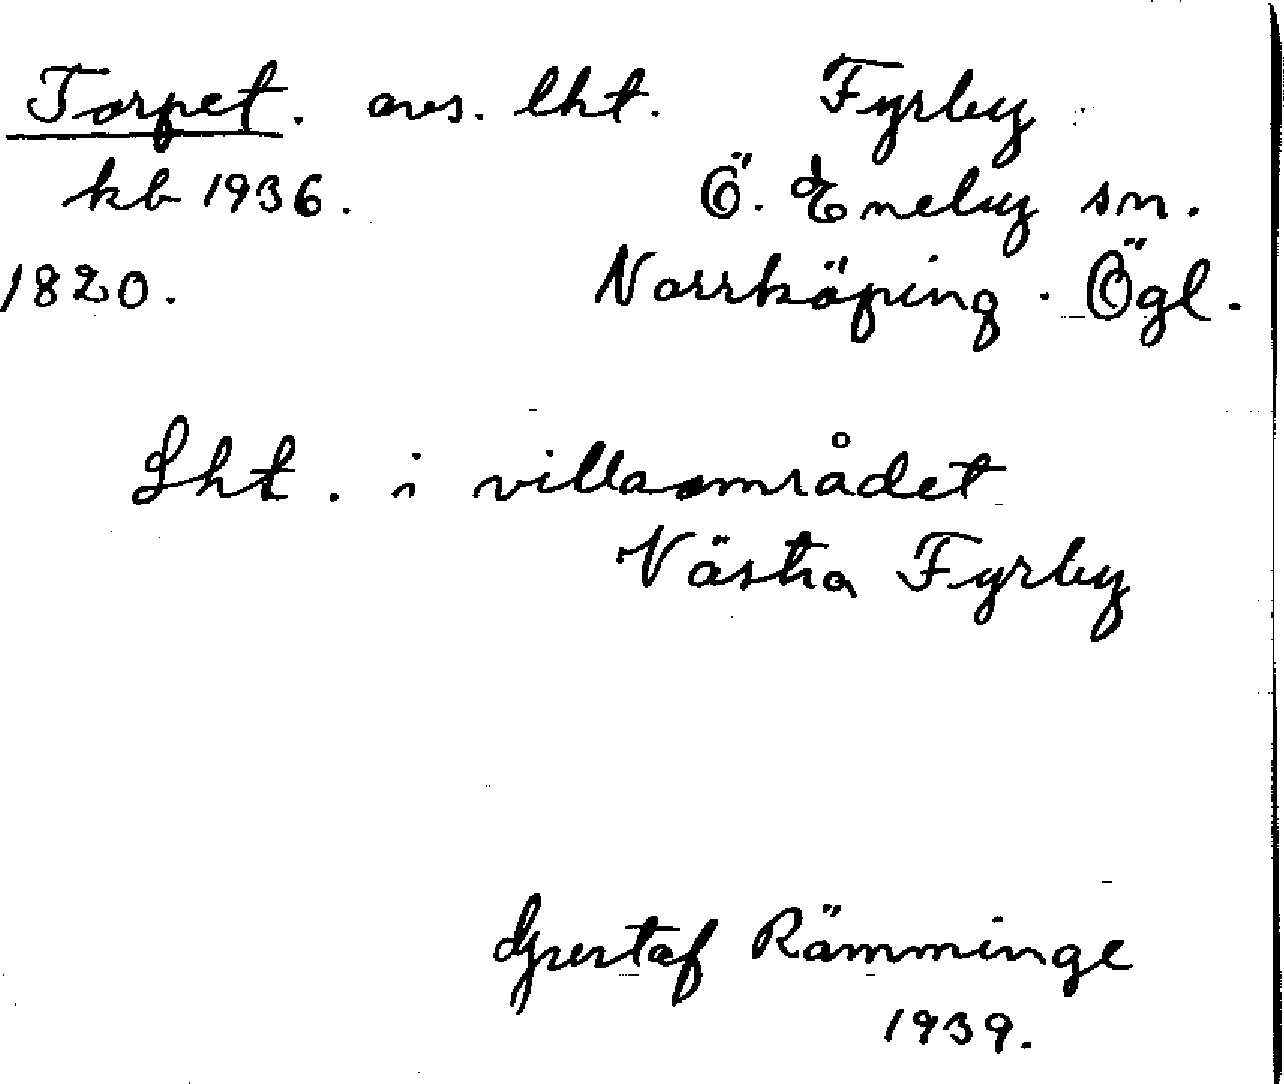 Torpet. avs. lht. Fyrby
kb 1936. Ö. Eneby sn.
1820. Norrköping. Ögl.
Lht. i villaområdet
Västra Fyrby
Gustaf Rämminge
1939.